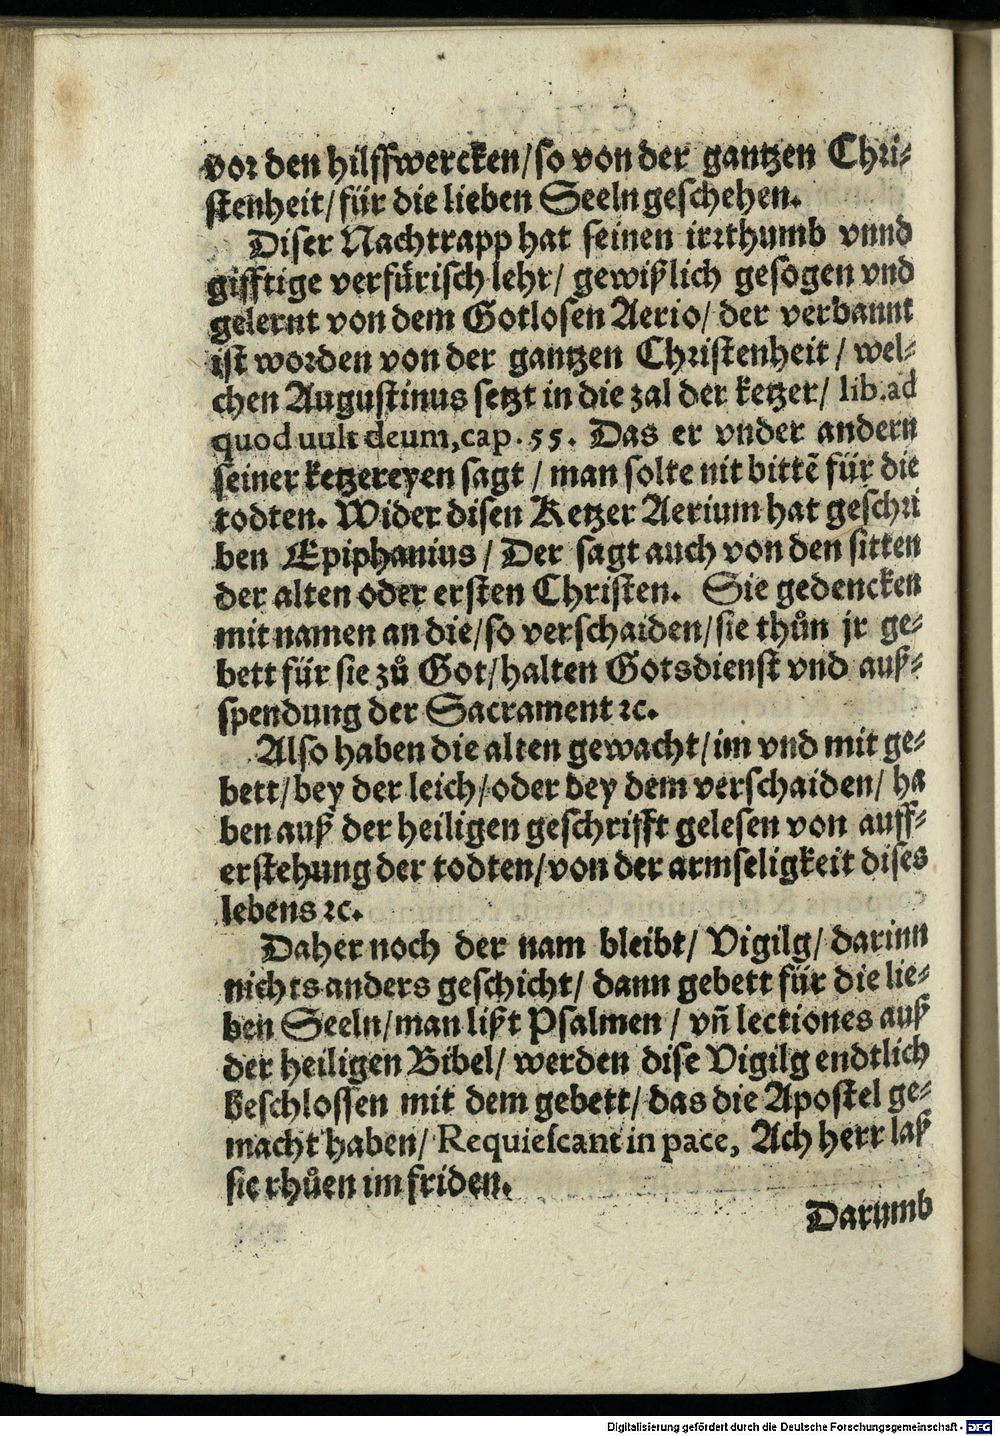 vor den hilffwercken/so von der gantzen Chri-
stenheit/für die lieben Seeln geschehen.
Diser Nachtrapp hat seinen irrthumb vnnd
gifftige verfürisch lehr/ gewißlich gesogen vnd
gelernt von dem Gotlosen Aerio/ der verbannt
ist worden von der gantzen Christenheit/ wel-
chen Augustinus setzt in die zal der ketzer/ lib. ad
quod uult deum, cap. 55. Das er vnder andern
seiner ketzereyen sagt / man solte nit bittē für die
todten. Wider disen Ketzer Aerium hat geschri
ben Epiphanius / Der sagt auch von den sitten
der alten oder ersten Christen. Sie gedencken
mit namen an die/so verschaiden/sie thůn jr ge-
bett für sie zů Got/halten Gotsdienst vnd auß-
spendung der Sacrament ꝛc.
Also haben die alten gewacht/im vnd mit ge-
bett/bey der leich/oder bey dem verschaiden/ ha
ben auß der heiligen geschrifft gelesen von auff-
erstehung der todten/von der armseligkeit dises
lebens ꝛc.
Daher noch der nam bleibt/ Vigilg/ darinn
nichts anders geschicht/ dann gebett für die lie-
ben Seeln/man lißt Psalmen / vñ lectiones auß
der heiligen Bibel/ werden dise Vigilg endtlich
beschlossen mit dem gebett/ das die Apostel ge-
macht haben/ Requiescant in pace, Ach herr laß
sie rhůen im friden.
Darumb
Digitalisierung gefördert durch die Deutsche Forschungsgemeinschaft - DFG